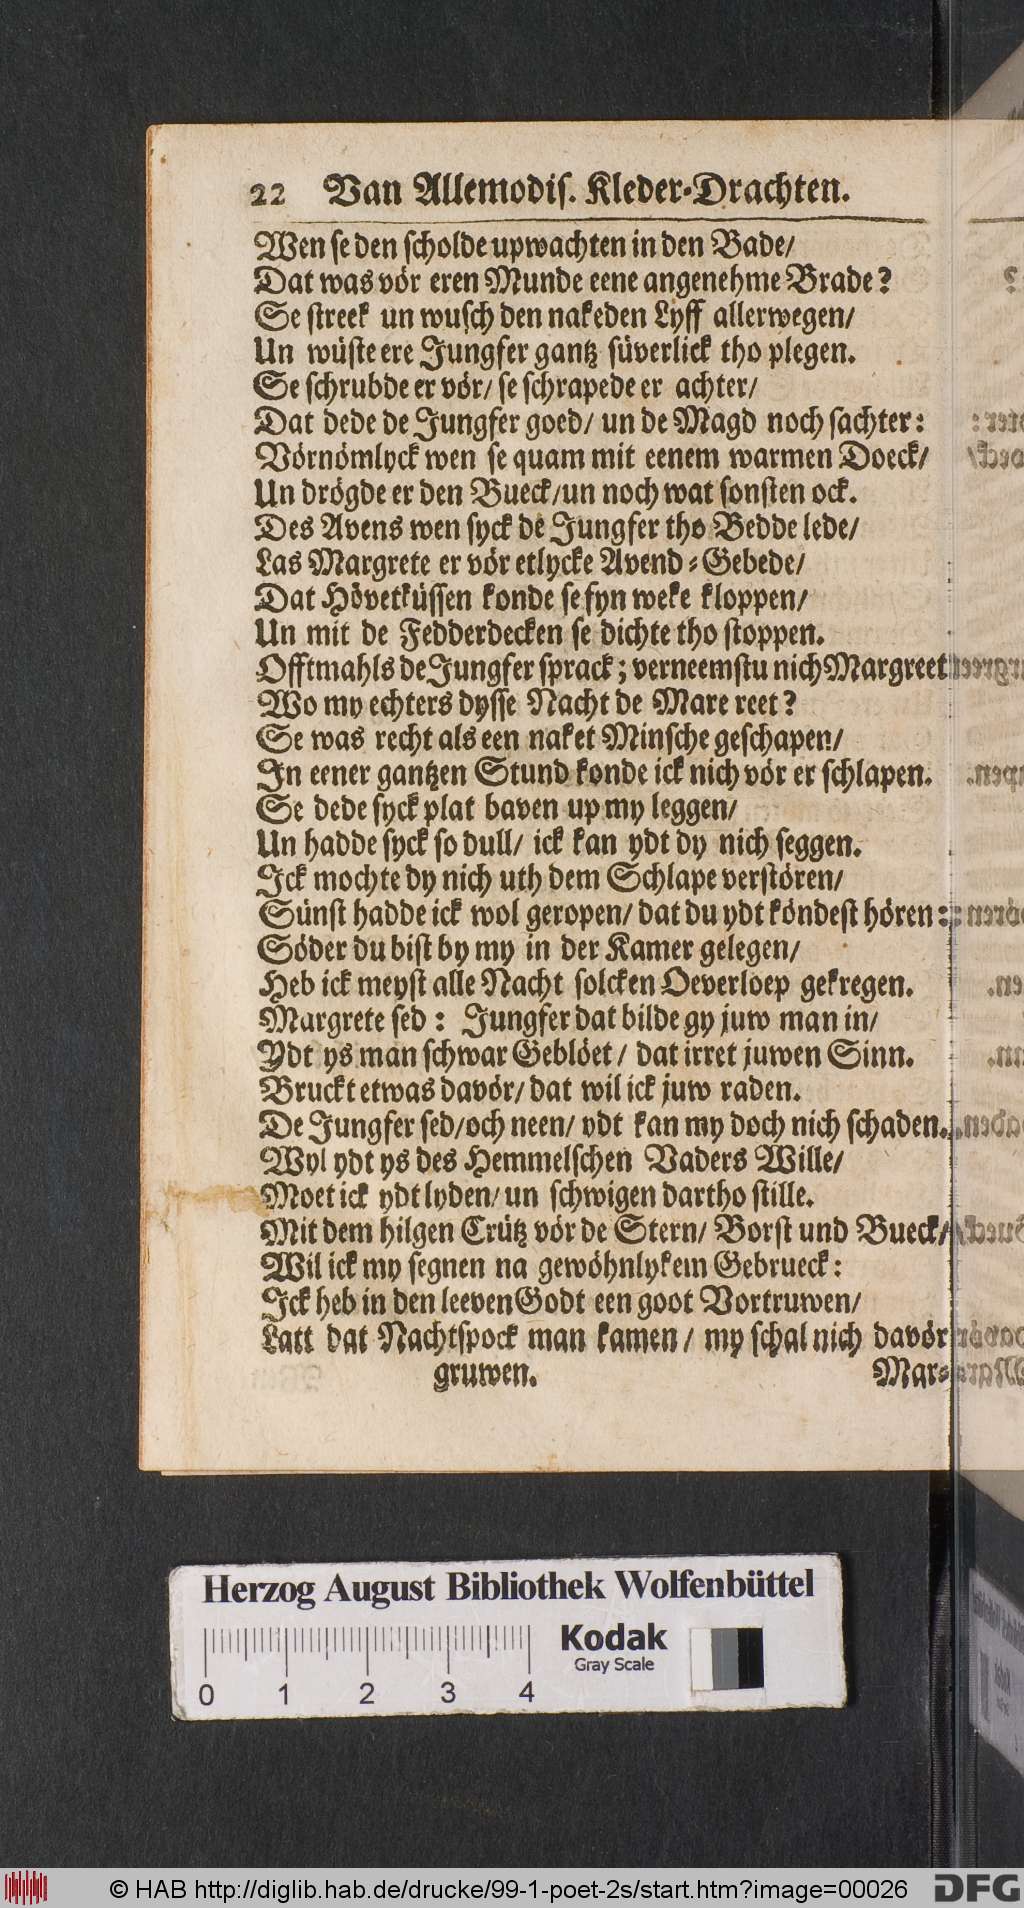 22 Van Allemodis. Kleder-Drachten.
Wen se den scholde upwachten in den Bade/
Dat was vör eren Munde eene angenehme Brade?
Se streek un wusch den nakeden Lyff allerwegen/
Un wüste ere Jungfer gantz süverlick tho plegen.
Se schrubde er vör/ se schrapede er achter/
Dat dede de Jungfer goed/ un de Magd noch sachter:
Vörnömlyck wen se quam mit eenem warmen Doeck/
Un drögde er den Bueck/un noch wat sonsten ock.
Des Avens wen syck de Jungfer tho Bedde lede/
Las Margrete er vör etlycke Avend-Gebede/
Dat Hövetküssen konde se fyn weke kloppen/
Un mit de Fedderdecken se dichte tho stoppen.
Offtmahls de Jungfer sprack; verneemstu nich Margreet
Wo my echters dysse Nacht de Mare reet?
Se was recht als een naket Minsche geschapen/
In eener gantzen Stund konde ick nich vör er schlapen.
Se dede syck plat baven up my leggen/
Un hadde syck so dull/ ick kan ydt dy nich seggen.
Ick mochte dy nich uth dem Schlape verstören/
Sünst hadde ick wol geropen/ dat du ydt köndest hören:
Söder du bist by my in der Kamer gelegen/
Heb ick meyst alle Nacht solcken Oeverloep gekregen.
Margrete sed: Jungfer dat bilde gy juw man in/
Ydt ys man schwar Geblöet/ dat irret juwen Sinn.
Bruckt etwas davör/ dat wil ick juw raden.
De Jungfer sed/och neen/ ydt kan my doch nich schaden.
Wyl ydt ys des Hemmelschen Vaders Wille/
Moet ick ydt lyden/ un schwigen dartho stille.
Mit dem hilgen Crütz vör de Stern/ Borst und Bueck/
Wil ick my segnen na gewöhnlykem Gebrueck:
Ick heb in den leeven Godt een goot Vortruwen/
Latt dat Nachtspock man kamen/ my schal nich davör
gruwen. Mar-
Herzog August Bibliothek Wolfenbüttel
Kodak
Gray Scale
0 1 2 3 4
© HAB http://diglib.hab.de/drucke/99-1-poet-2s/start.htm?image=00026 DFG